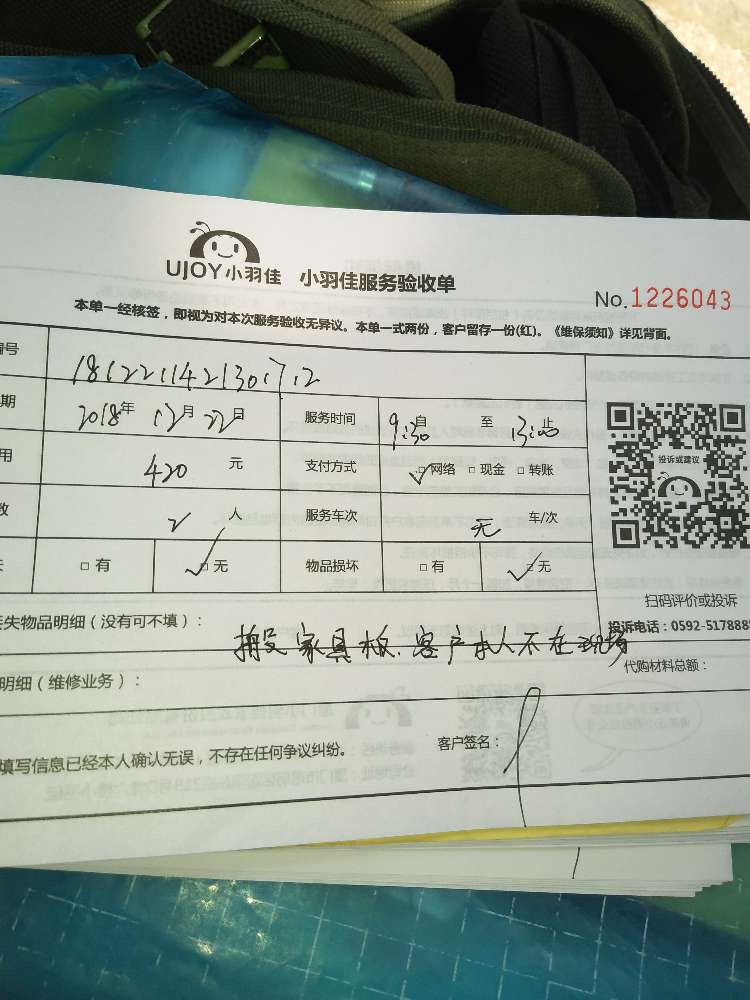 UJOY小羽佳 小羽佳服务验收单
No.1226043
本单一经核签，即视为对本次服务验收无异议。本单一式两份，客户留存一份(红)。《维保须知》详见背面。
编号 1812211421301712
期 2018年 12月 22日 服务时间 9:30 自 至 13:00 止
用 420 元 支付方式 ☑网络 □现金 □转账
投诉或建议
数 2 人 服务车次 无 车/次
□有 ☑无 物品损坏 □有 ☑无
扫码评价或投诉
投诉电话：0592-517888
丢失物品明细（没有可不填）：
搬运家具板、客户本人不在现场
明细（维修业务）：
代购材料总额：
填写信息已经本人确认无误，不存在任何争议纠纷。
客户签名：